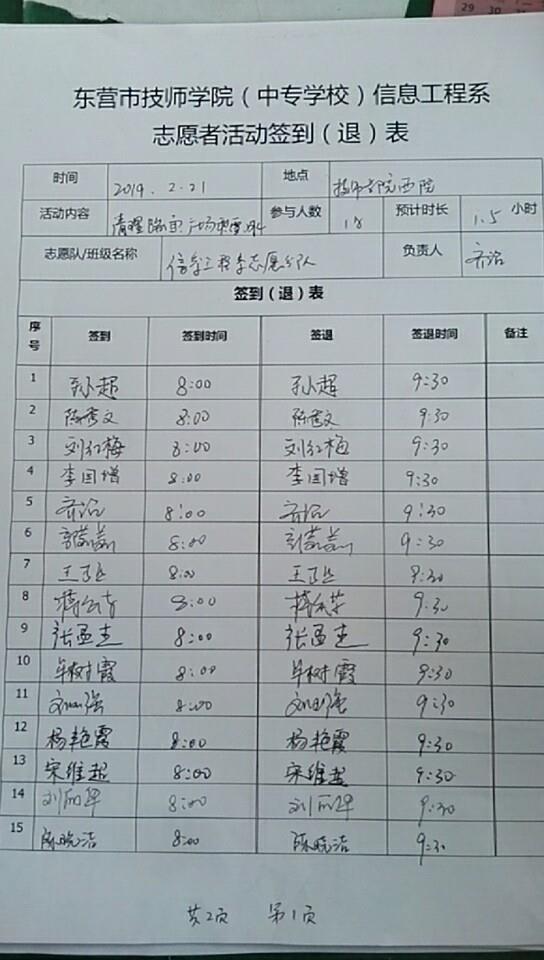 29 30
东营市技师学院（中专学校）信息工程系
志愿者活动签到（退）表
时间 2019.2.21 地点 技师学院西院
活动内容 清理 参与人数 18 预计时长 1.5 小时
志愿队/班级名称 信息工程系志愿分队 负责人 齐洁
签到（退）表
序号 签到 签到时间 签退 签退时间 备注
1 孙超 8:00 孙超 9:30
2 陈秀文 8:00 陈秀文 9:30
3 刘红梅 8:00 刘红梅 9:30
4 李国增 8:00 李国增 9:30
5 齐洁 8:00 齐洁 9:30
6 8:00 9:30
7 8:00 9:30
8 8:00 9:30
9 张孟圭 8:00 张孟圭 9:30
10 牟树霞 8:00 牟树霞 9:30
11 8:00 9:30
12 杨艳霞 8:00 杨艳霞 9:30
13 宋维超 8:00 宋维超 9:30
14 8:00 9:30
15 陈晓洁 8:00 陈晓洁 9:30
共2页 第1页